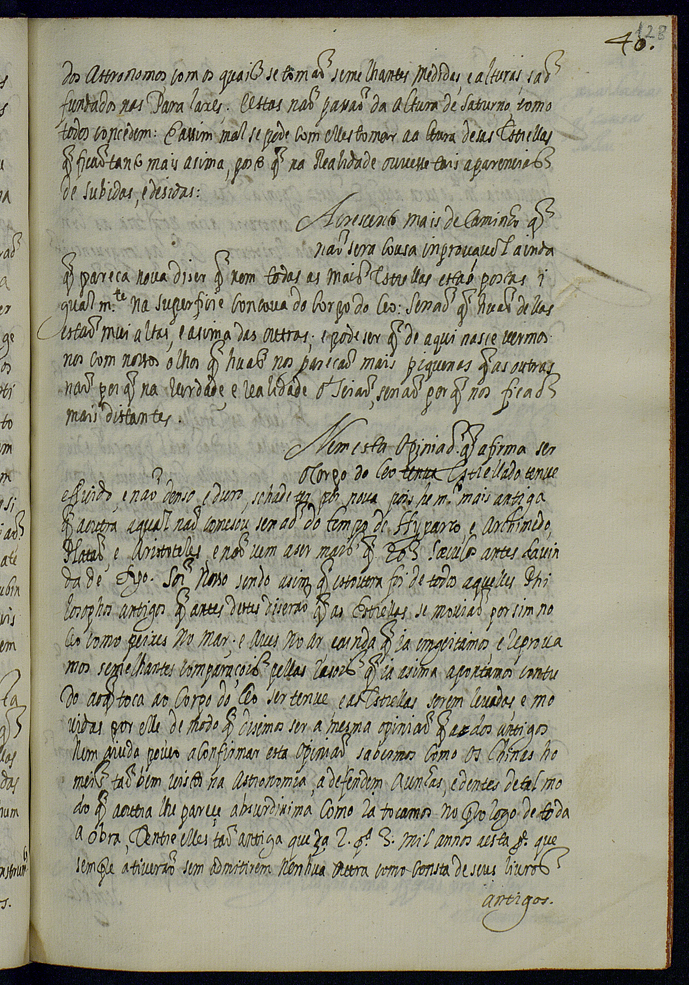 128
40.
dos Astronomos com os quais se tomaõ semelhantes medidas e alturas saõ
fundados nas Paralaxes. Estas naõ passaõ da altura de Saturno, como
todos concedem: E assim mal se pode com elles tomar a altura delas Estrellas
q̃ ficaõ tanto mais asima, posto q̃ na Realidade ouvesse tais aparencias
de subidas, e desidas:
Acrescento mais de Caminho q̃
naõ sera cousa improvavel ainda
q̃ pareca nova diser q̃ nem todas as mais Estrellas estaõ postas i
gualm.te na superficie Concava do Corpo do Ceo: senaõ q̃ huãs dellas
estaõ mui altas, e asima das outras. e pode ser q̃ de aqui nasce vermos
nos com nossos olhos q̃ huãs nos pareçaõ mais piquenas q̃ as outras
naõ por q̃ na verdade, e realidade o seiaõ, senaõ por q̃ nos ficaõ
mais distantes.
Nem esta Opiniaõ q̃ afirma ser
o Corpo do Ceo tenue Estrellado tenue
e fluido, e naõ denso, e duro, se hade por nova, pois he m.to mais antiga
q̃ a outra a qual naõ comesou senaõ do tempo de Hyparco e Archimedo,
Plataõ, e Aristoteles, e naõ vem a ser mais q̃ Sæculos antes da vin
da de Sõr Nosso sendo asim q̃ estoutra foi de todos aquelles Phi
losophos antigos q̃ antes destes diseraõ q̃ as Estrellas se moviaõ por si no
Ceo como peixes no Mar, e Aves no Ar e ainda q̃ ia engeitamos e reprova
mos semelhantes comparaçois pellas rasois q̃ ia asima apontamos contu
do ao q̃ toca ao Corpo do Ceo ser tenue e as Estrellas serem levadas e mo
vidas por elle de modo q̃ disemos ser a mesma opiniaõ q̃ a dos antigos
Nem aiuda pouco a confirmar esta Opiniaõ sabermos como os Chinas ho
mens taõ bem vistos na Astronomia, a defendem a unhas, e dentes de tal mo
do q̃ a outra lhe pareçe absurdissima como ia tocamos no Prologo de toda
a obra, E entre elles taõ antiga que ha 2. q.^ 3. mil annos a esta p.te que
sempre a tiveraõ sem admitirem nenhuã outra como consta de seus livros
antigos.